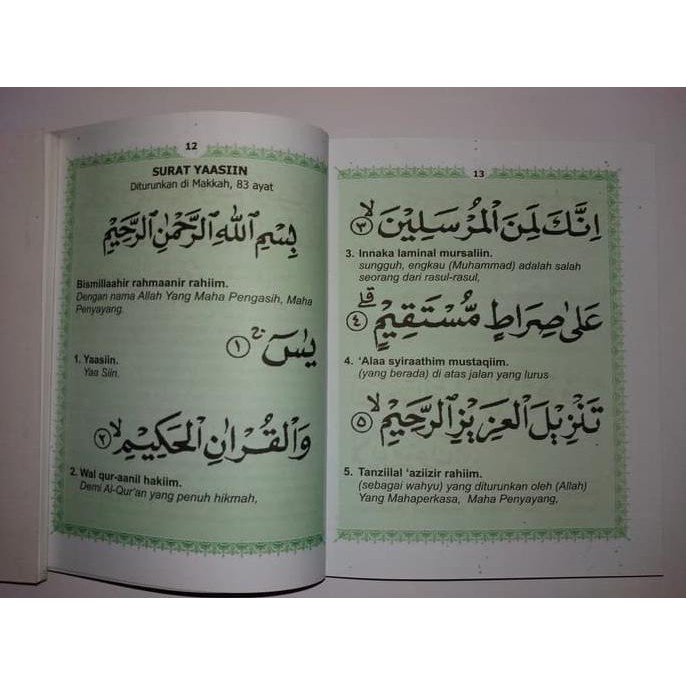 12
SURAT YAASIIN
Diturunkan di Makkah, 83 ayat
بِسْمِ اللهِ الرَّحْمٰنِ الرَّحِيْمِ
Bismillaahir rahmaanir rahiim.
Dengan nama Allah Yang Maha Pengasih, Maha
Penyayang.
يٰسۤ ۚ ۝١
1. Yaasiin.
Yaa Siin.
وَالْقُرْاٰنِ الْحَكِيْمِۙ ۝٢
2. Wal qur-aanil hakiim.
Demi Al-Qur'an yang penuh hikmah,
13
اِنَّكَ لَمِنَ الْمُرْسَلِيْنَۙ ۝٣
3. Innaka laminal mursaliin.
sungguh, engkau (Muhammad) adalah salah
seorang dari rasul-rasul,
عَلٰى صِرَاطٍ مُّسْتَقِيْمٍۗ ۝٤
4. 'Alaa syiraathim mustaqiim.
(yang berada) di atas jalan yang lurus
تَنْزِيْلَ الْعَزِيْزِ الرَّحِيْمِۙ ۝٥
5. Tanziilal 'aziizir rahiim.
(sebagai wahyu) yang diturunkan oleh (Allah)
Yang Mahaperkasa, Maha Penyayang,